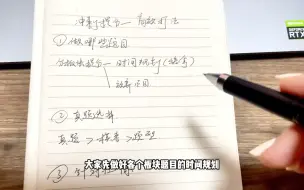 冲刺提分 — 高效刷法
① 做哪些题目
分板块提分 — 时间规划(提高)
放弃不同
② 真题选择
真题 > 模考 > 题型
大家先做好各个板块题目的时间规划
③
RTX